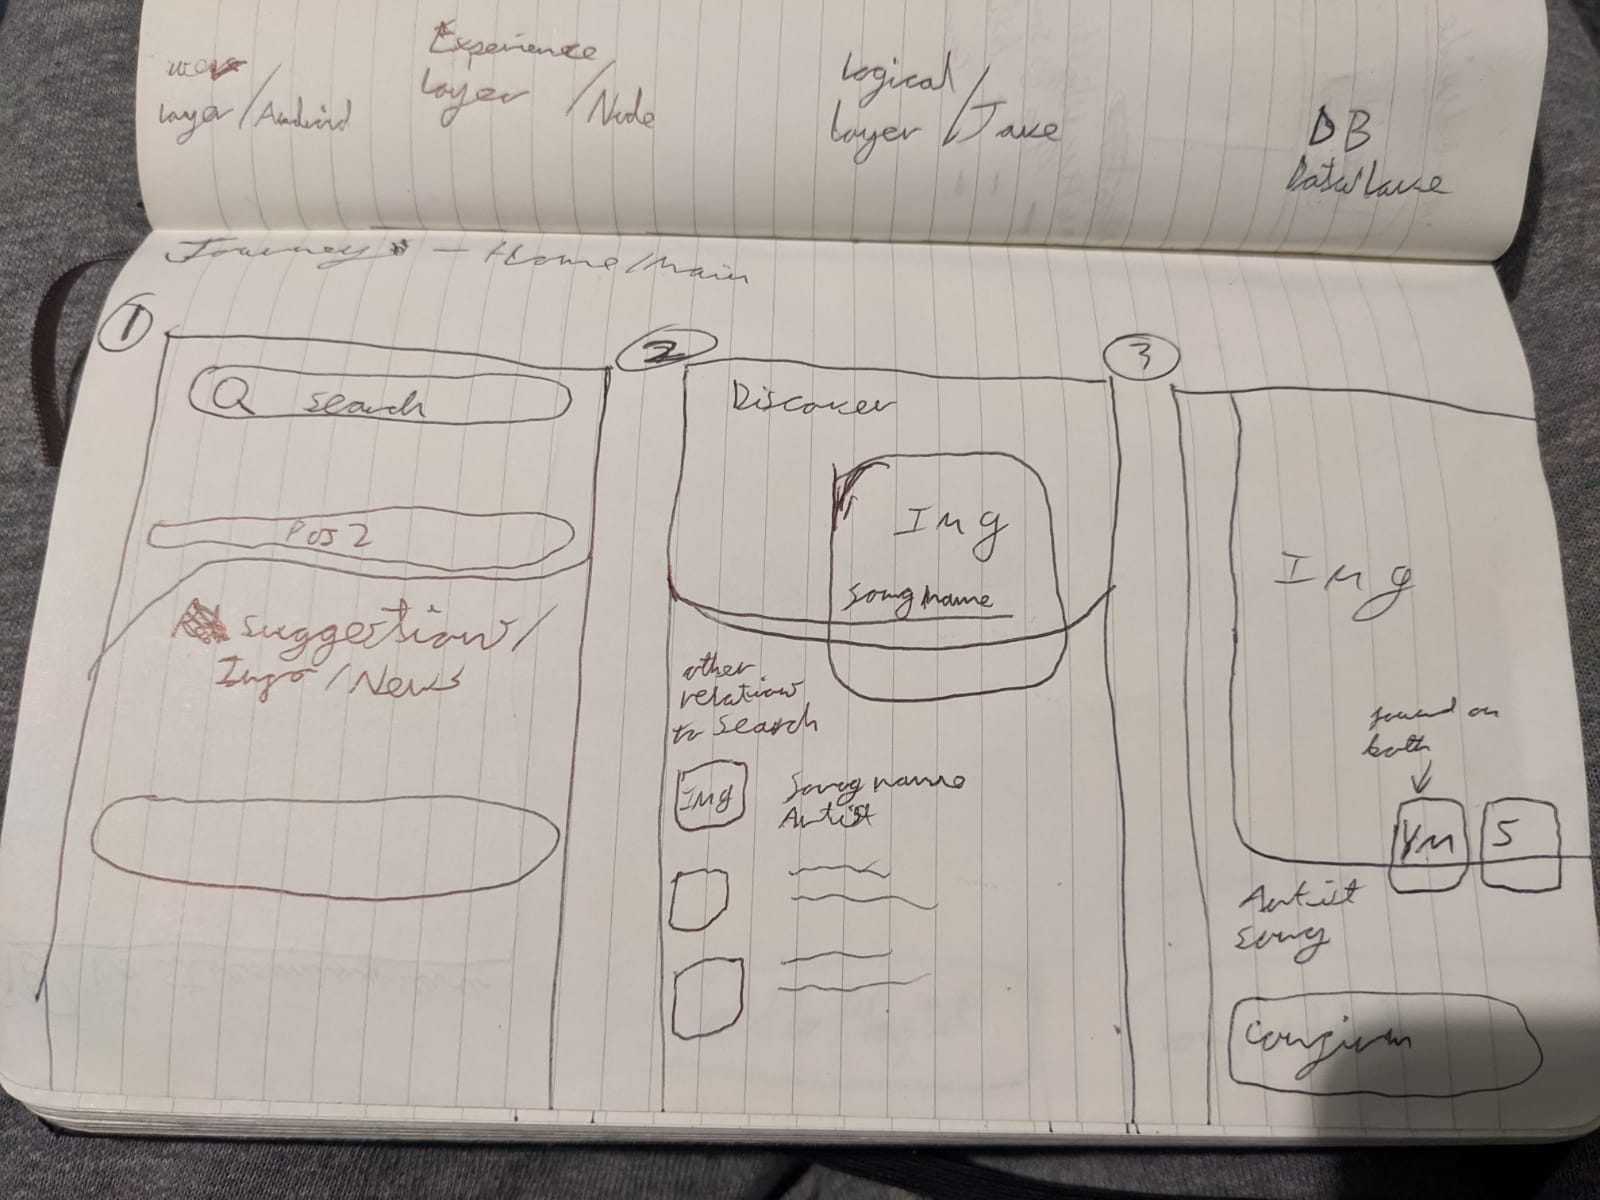 layer / Android
Experience
layer / Node
Logical
layer / Java
DB
Journey - Home/Main
1
search
Pos 2
suggestion/
Info / News
2
Discover
Img
Song name
other
relation
to search
Img
Song name
Artist
3
Img
found on
both
YM
S
Artist
song